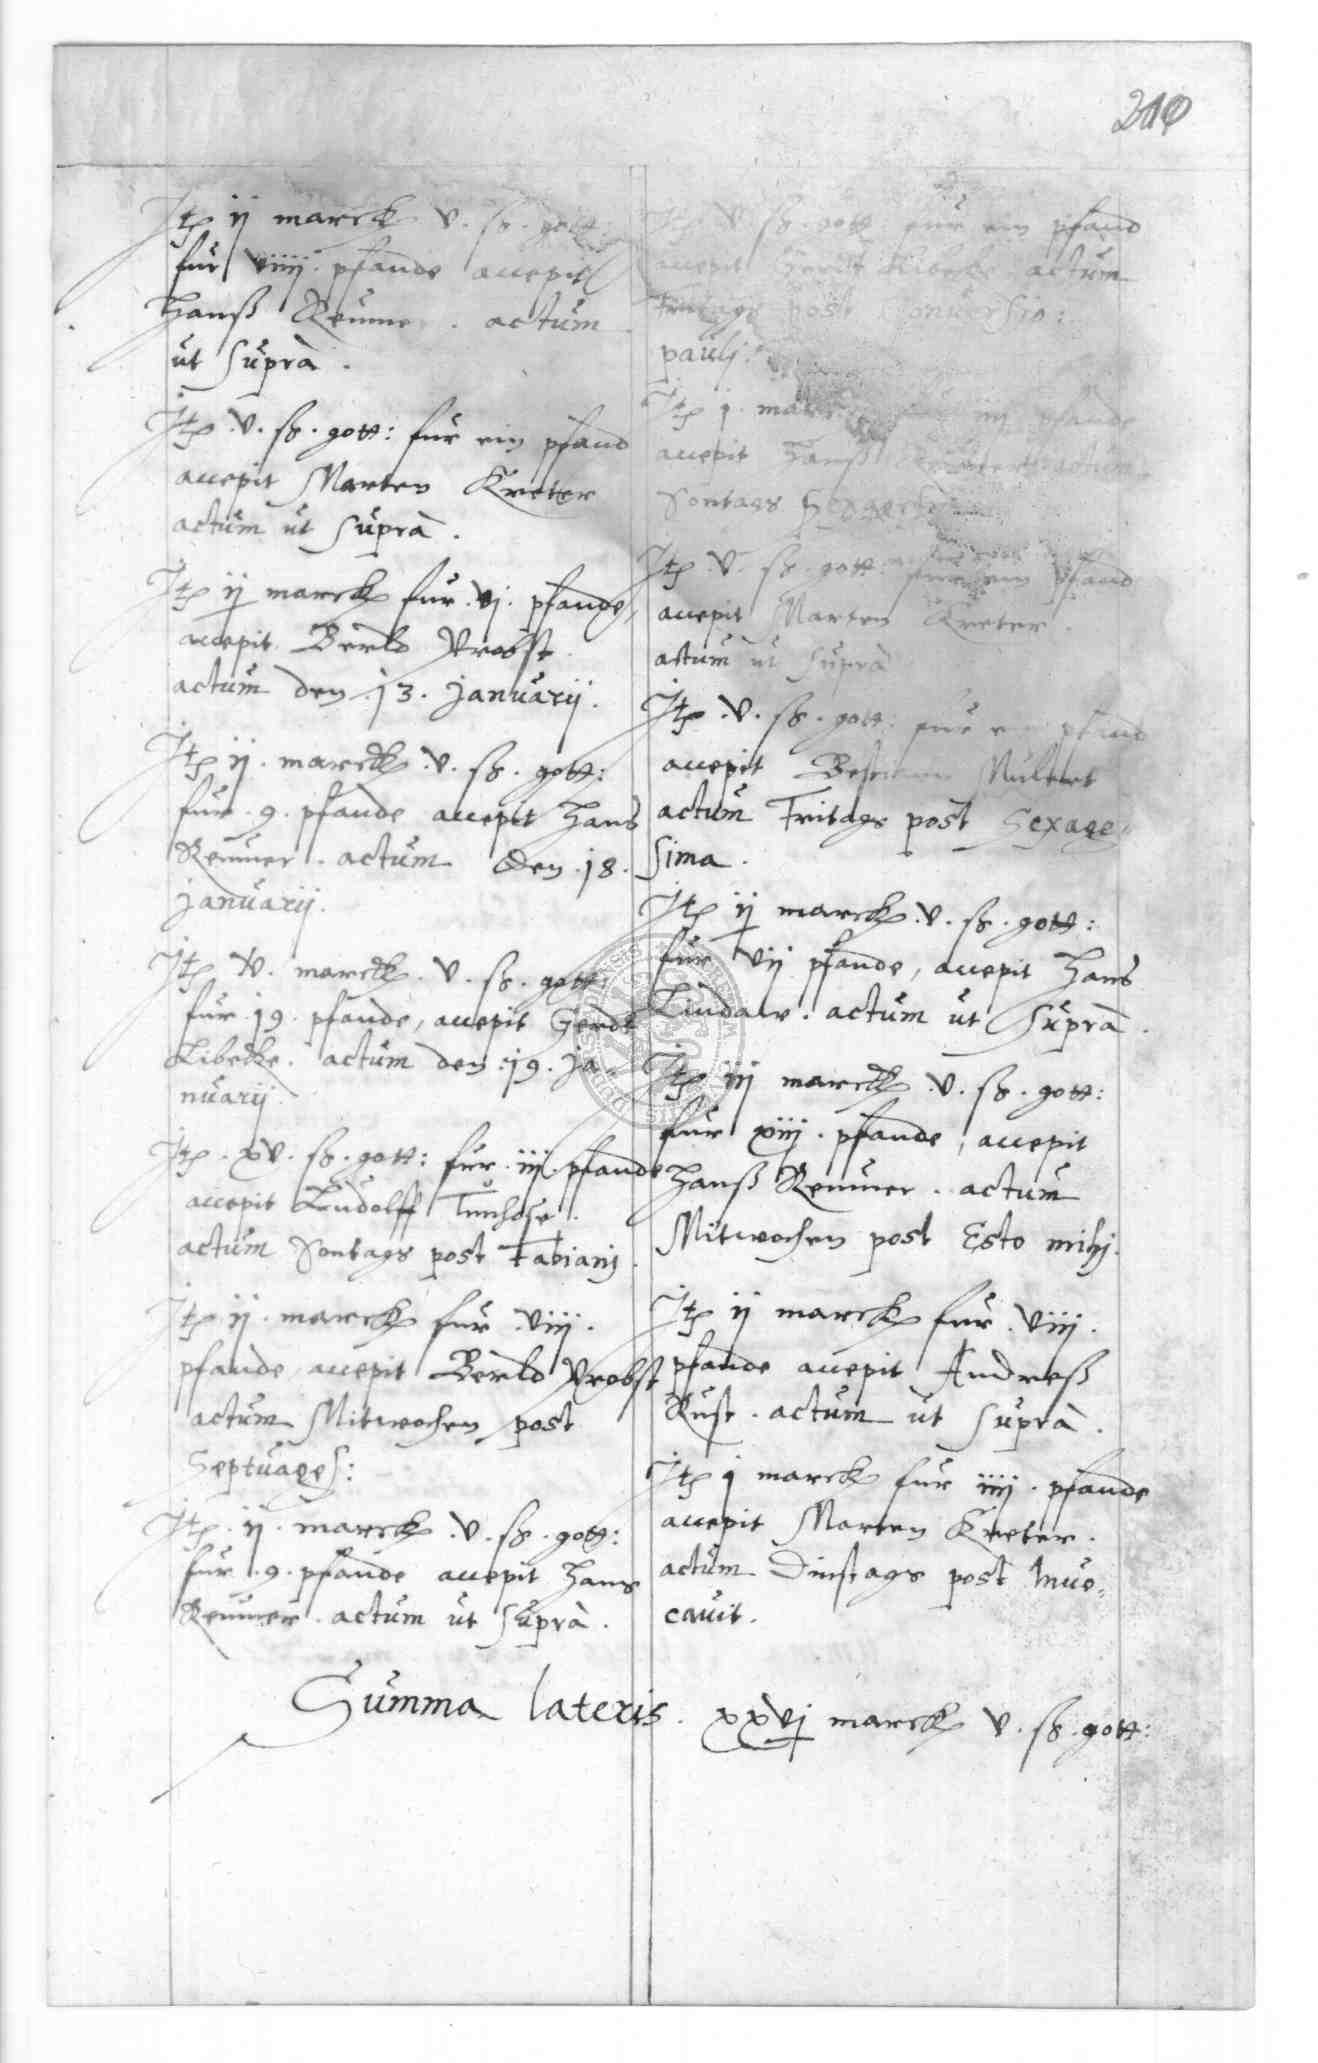 210
Jtẽ ij marck v. ß. gott:
fur viiij. pfande accepit
Hanß Remmer. actum
ut supra.
Jtẽ .v. ß. gott: fur ein pfand
accepit Marten Kreter
actum ut supra.
Jtẽ ij marck fur .vj. pfande,
accepit Berld Probst.
actum den .13. januarij.
Jtẽ ij. marck .v. ß. gott:
fur .9. pfande accepit Hans
Remmer. actum den .18.
januarij.
Jtẽ v. marck. v. ß. gott:
fur .19. pfande, accepit Gerdt
Libecke. actum den .19. ja=
nuarij.
Jtẽ. xv. ß. gott: fur .iij. pfande
accepit Ludolff
actum Sontags post Fabianj.
Jtẽ ij. marck fur .viij.
pfande accepit Berld Probst
actum Mitwochen post
Septuages:
Jtẽ. ij. marck .v. ß. gott:
fur .9. pfande accepit Hans
Remmer. actum ut supra.
Jtẽ v. ß. gott fur ein pfand
accepit Gerdt Libecke actum
Fritags post Conuersio:
paulj.
Jtẽ j. marck pfande
accepit Hanß actum
Sontags
Jtẽ .v. ß. gott fur ein pfand
accepit Marten Kreter.
actum ut supra
Jtẽ .v. ß. gott: fur ein pfand
accepit Mulert
actum Fritags post Sexage=
sima.
Jtẽ ij marck .v. ß. gott:
fur vij pfande, accepit Hans
Lindaw. actum ut supra.
Jtẽ iij marck .v. ß. gott:
fur xiij. pfande, accepit
Hanß Remmer. actum
Mitwochen post Esto mihj.
Jtẽ ij marck fur .viij.
pfande accepit Andreß
Rust. actum ut supra.
Jtẽ j marck fur iiij. pfande
accepit Marten Kreter.
actum Dinstags post Inuo=
cauit.
Summa lateris. xxvj marck v. ß. gott: